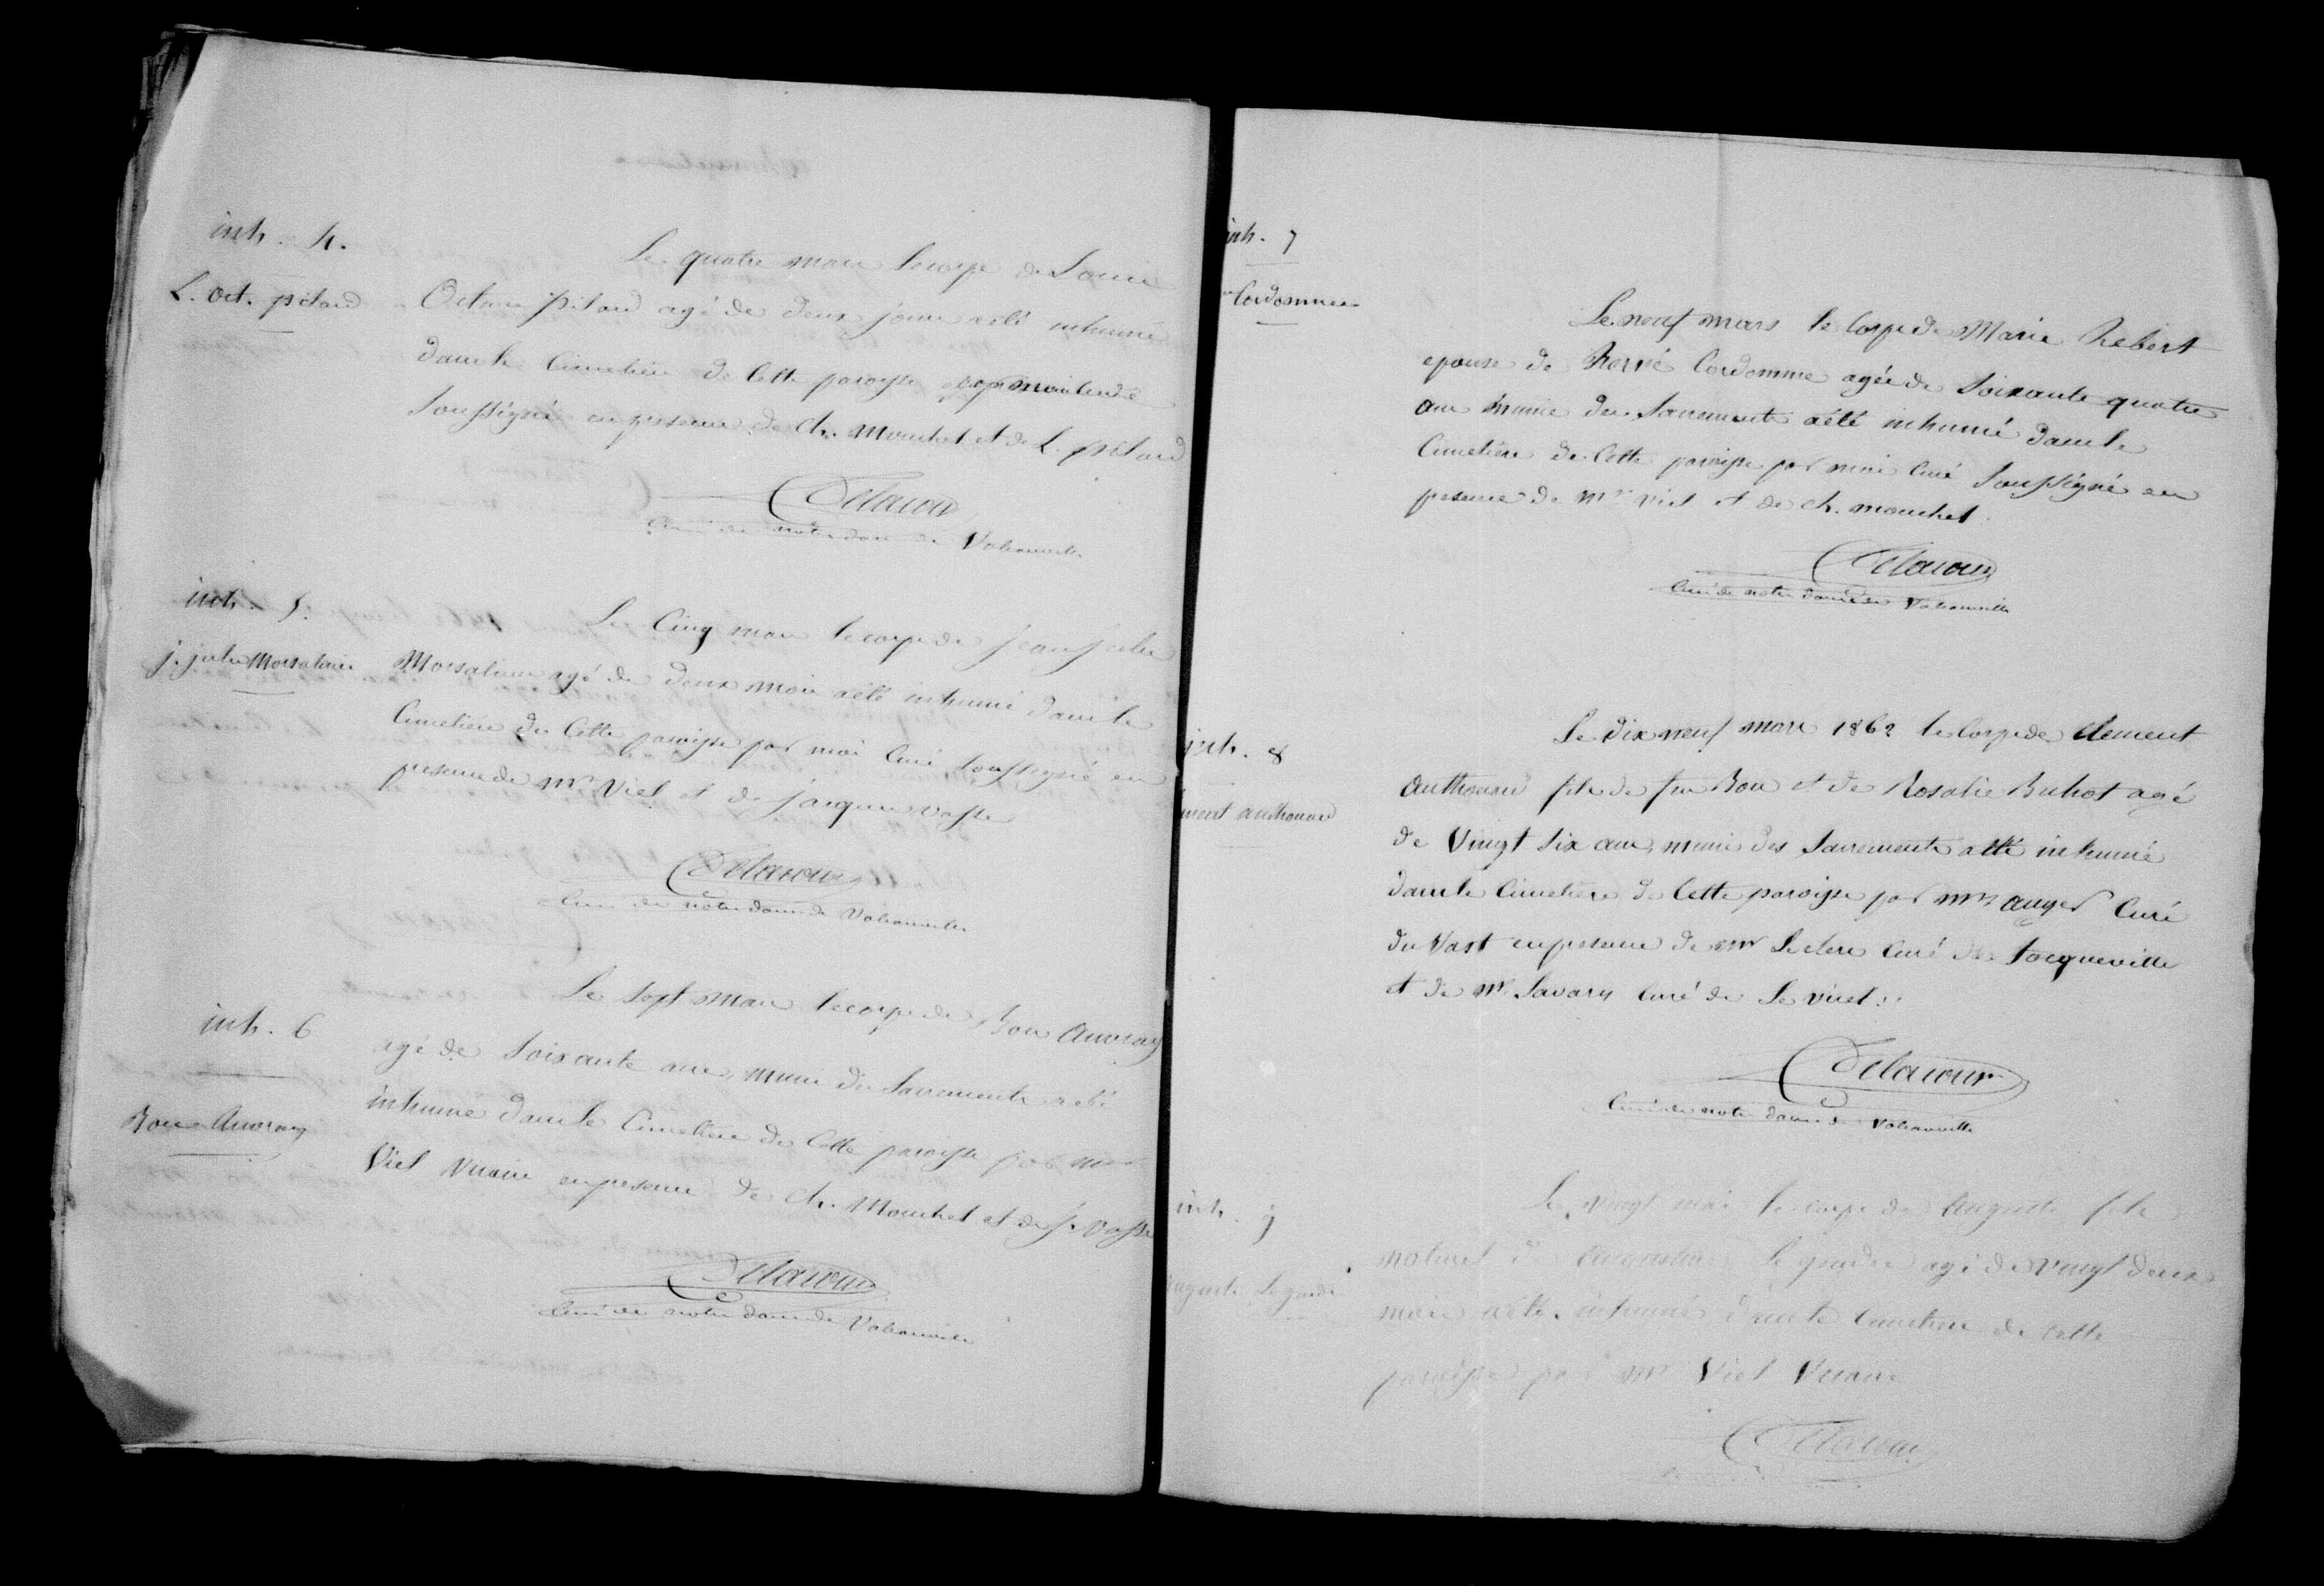 inh. 4.
L. Oct. pitard
Le quatre mars le corps de Louis
Octave pitard agé de deux jours a été inhumé
dans le Cimetière de Cette paroisse par moi Curé
Soussigné en presence de Ch. Mouchel et de L. pitard
Delacour
Curé de notre dame de Valcanville
inh. 5.
j. jules Morsalaine
Le Cinq mars le corps de jean jules
Morsaline agé de deux mois a été inhumé dans le
Cimetière de Cette paroisse par moi Curé Soussigné en
presence de Mr Viel et de jacques vasse
Delacour
Curé de notre dame de Valcanville
inh. 6
Bon Auvray
Le Sept Mars le corps de Bon Auvray
agé de Soixante ans, muni des Sacrements a été
inhumé dans le Cimetière de Cette paroisse par mr
Viel Vicaire en presence de Ch. Mouchel et de j. vasse
Delacour
Curé de notre dame de Valcanville
inh. 7
Cordomme
Le neuf mars le Corps de Marie hebert
epouse de hervé Cordomme agée de Soixante quatre
ans munie des Sacrements a été inhumé dans le
Cimetière de Cette paroisse par moi Curé Soussigné en
presence de Mr Viel et de ch. mouchel.
Delacour
Curé de notre dame de Valcanville
inh. 8
ment authouard
Le dix neuf mars 1862 le Corps de Clement
authouard fils de feu Bon et de Rosalie Buhot agé
de Vingt Six ans, muni des Sacrements a été inhumé
dans le Cimetière de Cette paroisse par Mr auger Curé
du Vast en presence de mr Leclerc Curé de tocqueville
et de Mr Savary Curé de Le vicel.
Delacour
Curé de notre dame de Valcanville
inh. 9
auguste Legendre
Le Vingt mars le corps de Auguste fils
naturel d' Legendre agé de Vingt deux
mois a été inhumé dans le Cimetière de Cette
paroisse par Mr Viel Vicaire
Delacour